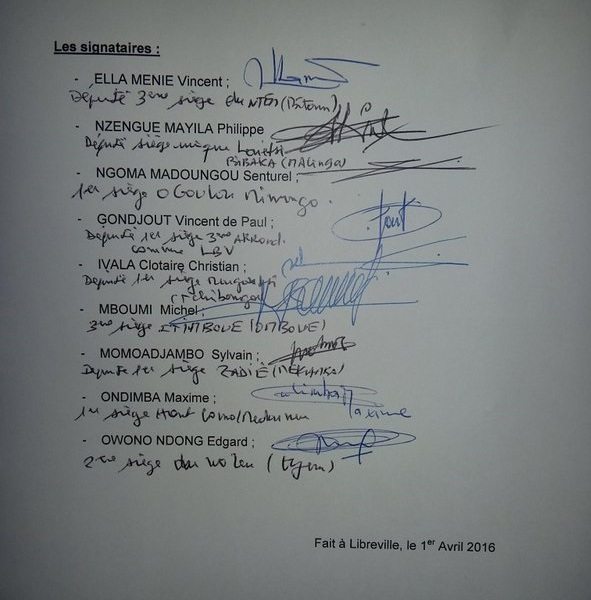 Les signataires :
- ELLA MENIE Vincent ;
Député 3ème siège du NTEM (Bitam)
- NZENGUE MAYILA Philippe
Député siège unique Louetsi
BIBAKA (Malinga)
- NGOMA MADOUNGOU Senturel ;
1er siège Ogoulou Mimongo.
- GONDJOUT Vincent de Paul ;
Député 1er siège 3ème ARROND.
commune LBV
- IVALA Clotaire Christian ;
Député 1er siège Mougoutsi
(Tchibanga)
- MBOUMI Michel ;
3ème siège ETIMBOUE (OMBOUE)
- MOMOADJAMBO Sylvain ;
Député 1er siège ZADIÉ (MEKAMBO)
- ONDIMBA Maxime ;
1er siège Haut
Maxime
- OWONO NDONG Edgard ;
2ème siège du Woleu (Oyem)
Fait à Libreville, le 1er Avril 2016